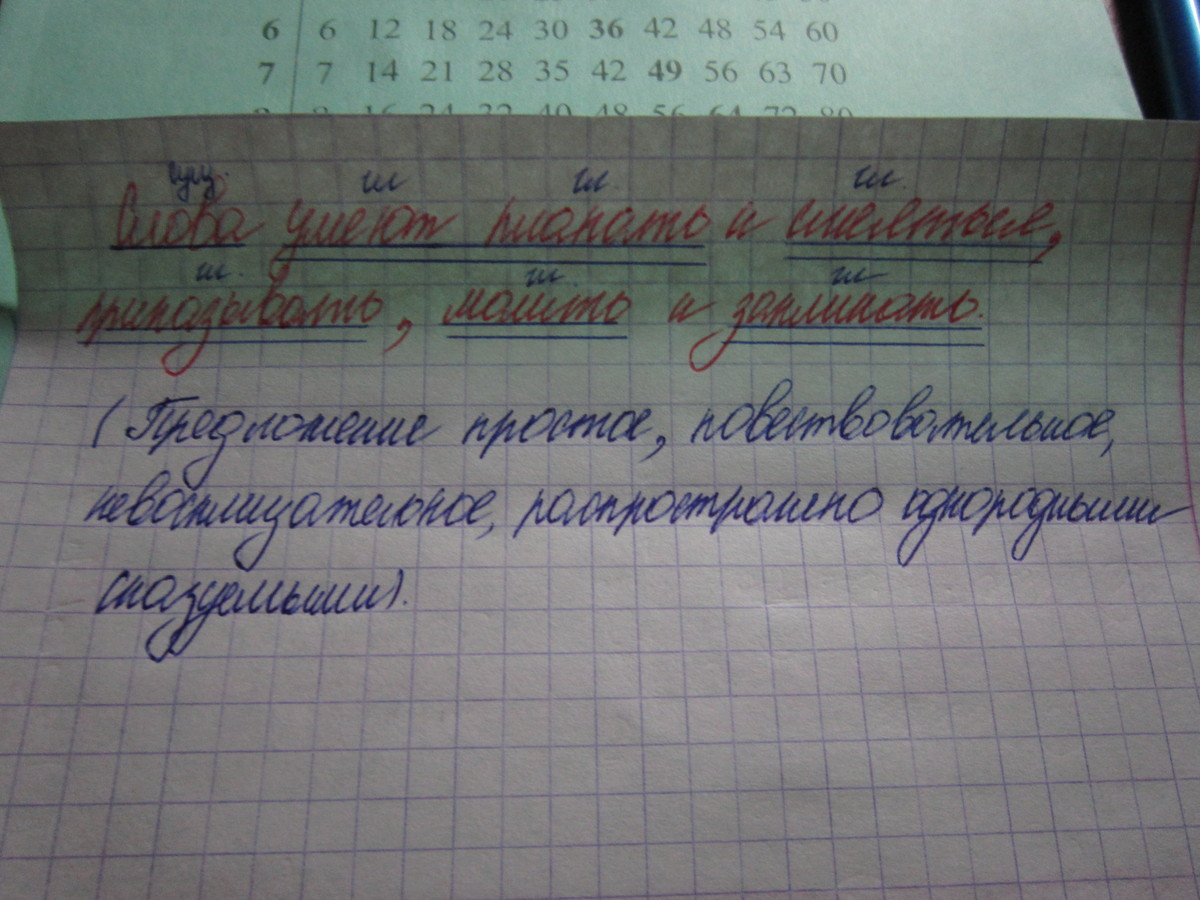 6 6 12 18 24 30 36 42 48 54 60
7 7 14 21 28 35 42 49 56 63 70
16 24 32 40 48 56 64 72 80
сущ. гл гл. гл.
Слова умеют плакать и смеяться,
гл. гл гл
приказывать, молить и заклинать.
(Предложение простое, повествовательное,
невосклицательное, распространено однородными
сказуемыми).